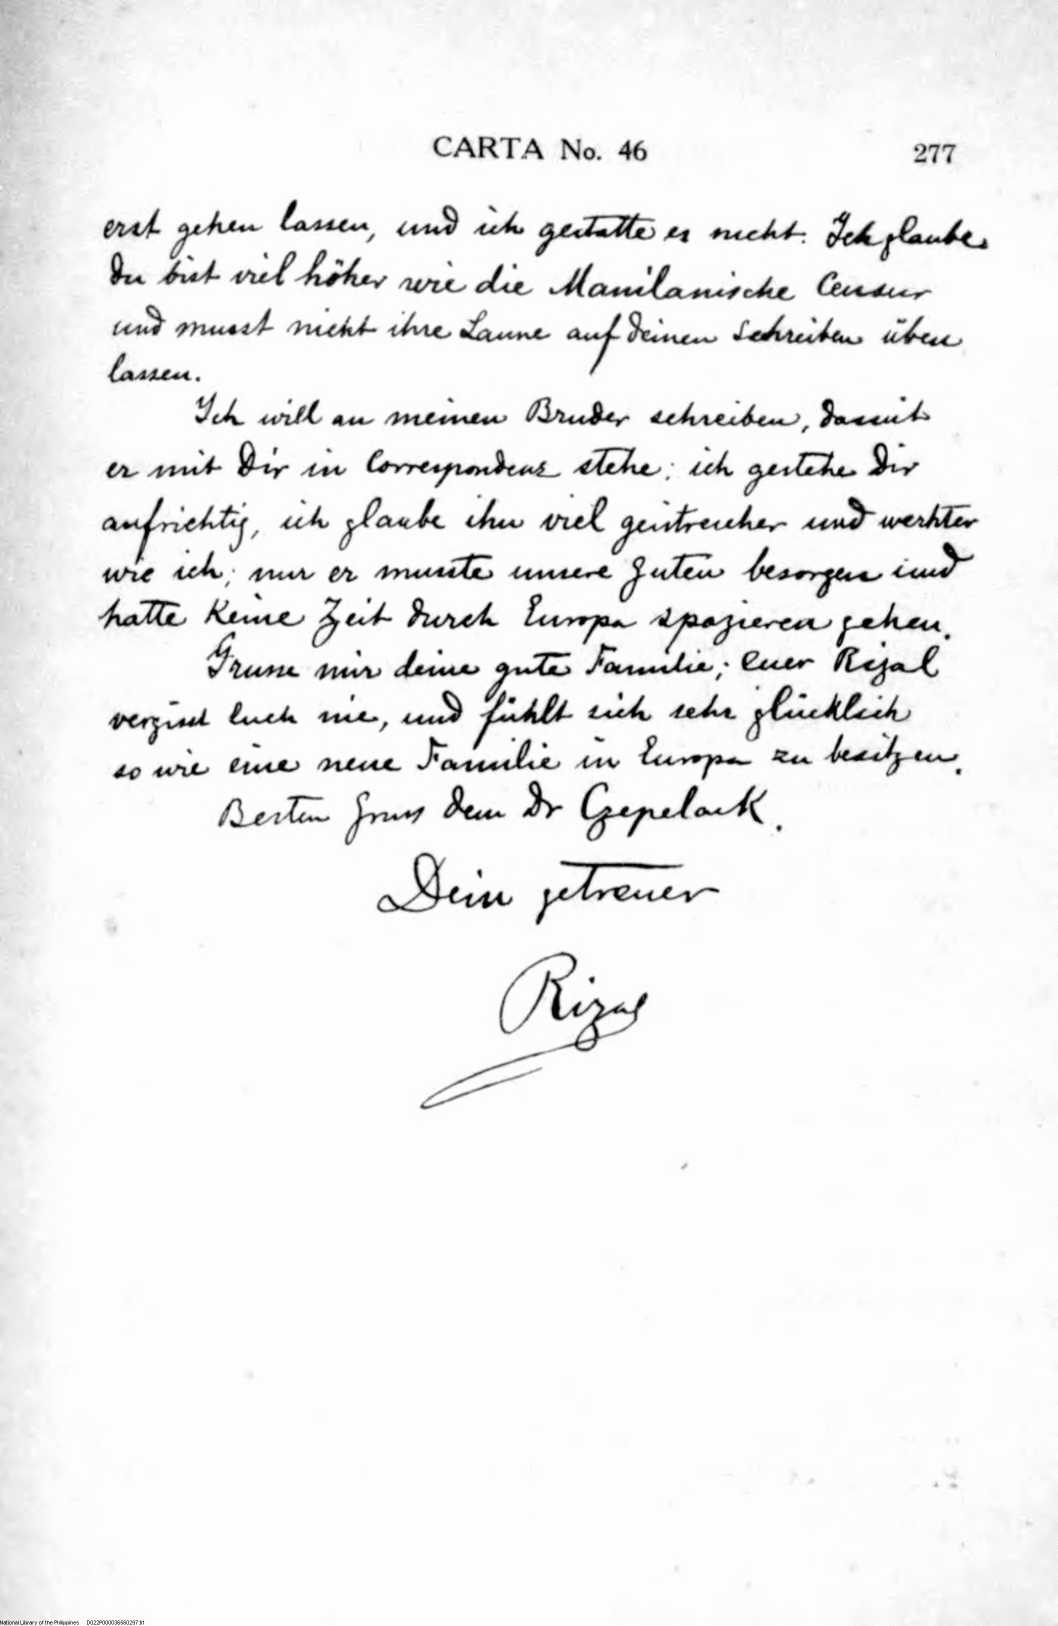 CARTA No. 46 277
erst gehen lassen, und ich gestatte es nicht. Ich glaube
du bist viel höher wie die Manilanische Censur
und musst nicht ihre Laune auf deinen Schreiben üben
lassen.
Ich will an meinen Bruder schreiben, damit
er mit Dir in Correspondenz stehe; ich gestehe Dir
aufrichtig, ich glaube ihn viel geistreicher und werhter
wie ich; nur er musste unsere Guten besorgen und
hatte keine Zeit durch Europa spazieren gehen.
Grusse mir deine gute Familie; Euer Rizal
vergisst Euch nie, und fühlt sich sehr glücklich
so wie eine neue Familie in Europa zu besitzen.
Besten Gruss dem Dr Czepelack.
Dein getreuer
Rizal
National Library of the Philippines